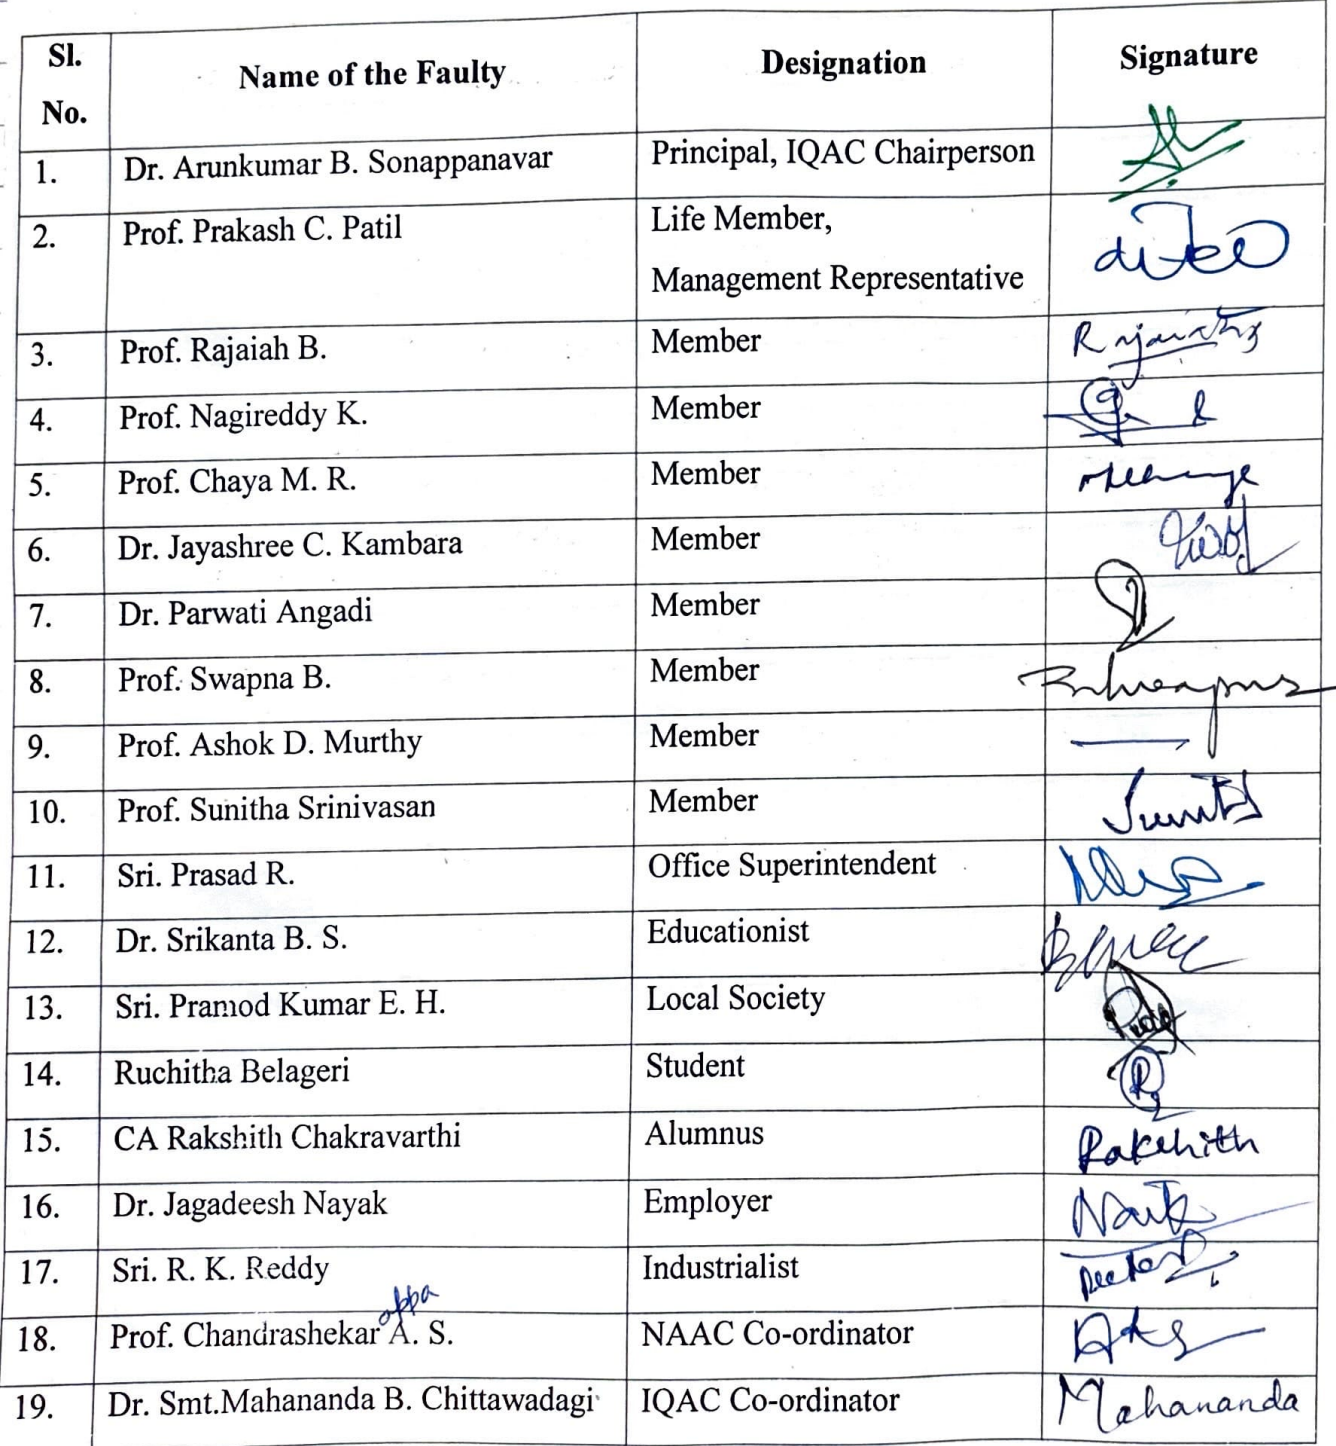 Sl. No. Name of the Faulty Designation Signature
1. Dr. Arunkumar B. Sonappanavar Principal, IQAC Chairperson
2. Prof. Prakash C. Patil Life Member,
Management Representative
3. Prof. Rajaiah B. Member
4. Prof. Nagireddy K. Member
5. Prof. Chaya M. R. Member
6. Dr. Jayashree C. Kambara Member
7. Dr. Parwati Angadi Member
8. Prof. Swapna B. Member
9. Prof. Ashok D. Murthy Member
10. Prof. Sunitha Srinivasan Member
11. Sri. Prasad R. Office Superintendent
12. Dr. Srikanta B. S. Educationist
13. Sri. Pramod Kumar E. H. Local Society
14. Ruchitha Belageri Student
15. CA Rakshith Chakravarthi Alumnus Rakshith
16. Dr. Jagadeesh Nayak Employer
17. Sri. R. K. Reddy Industrialist
18. Prof. Chandrashekar appa A. S. NAAC Co-ordinator
19. Dr. Smt.Mahananda B. Chittawadagi IQAC Co-ordinator Mahananda